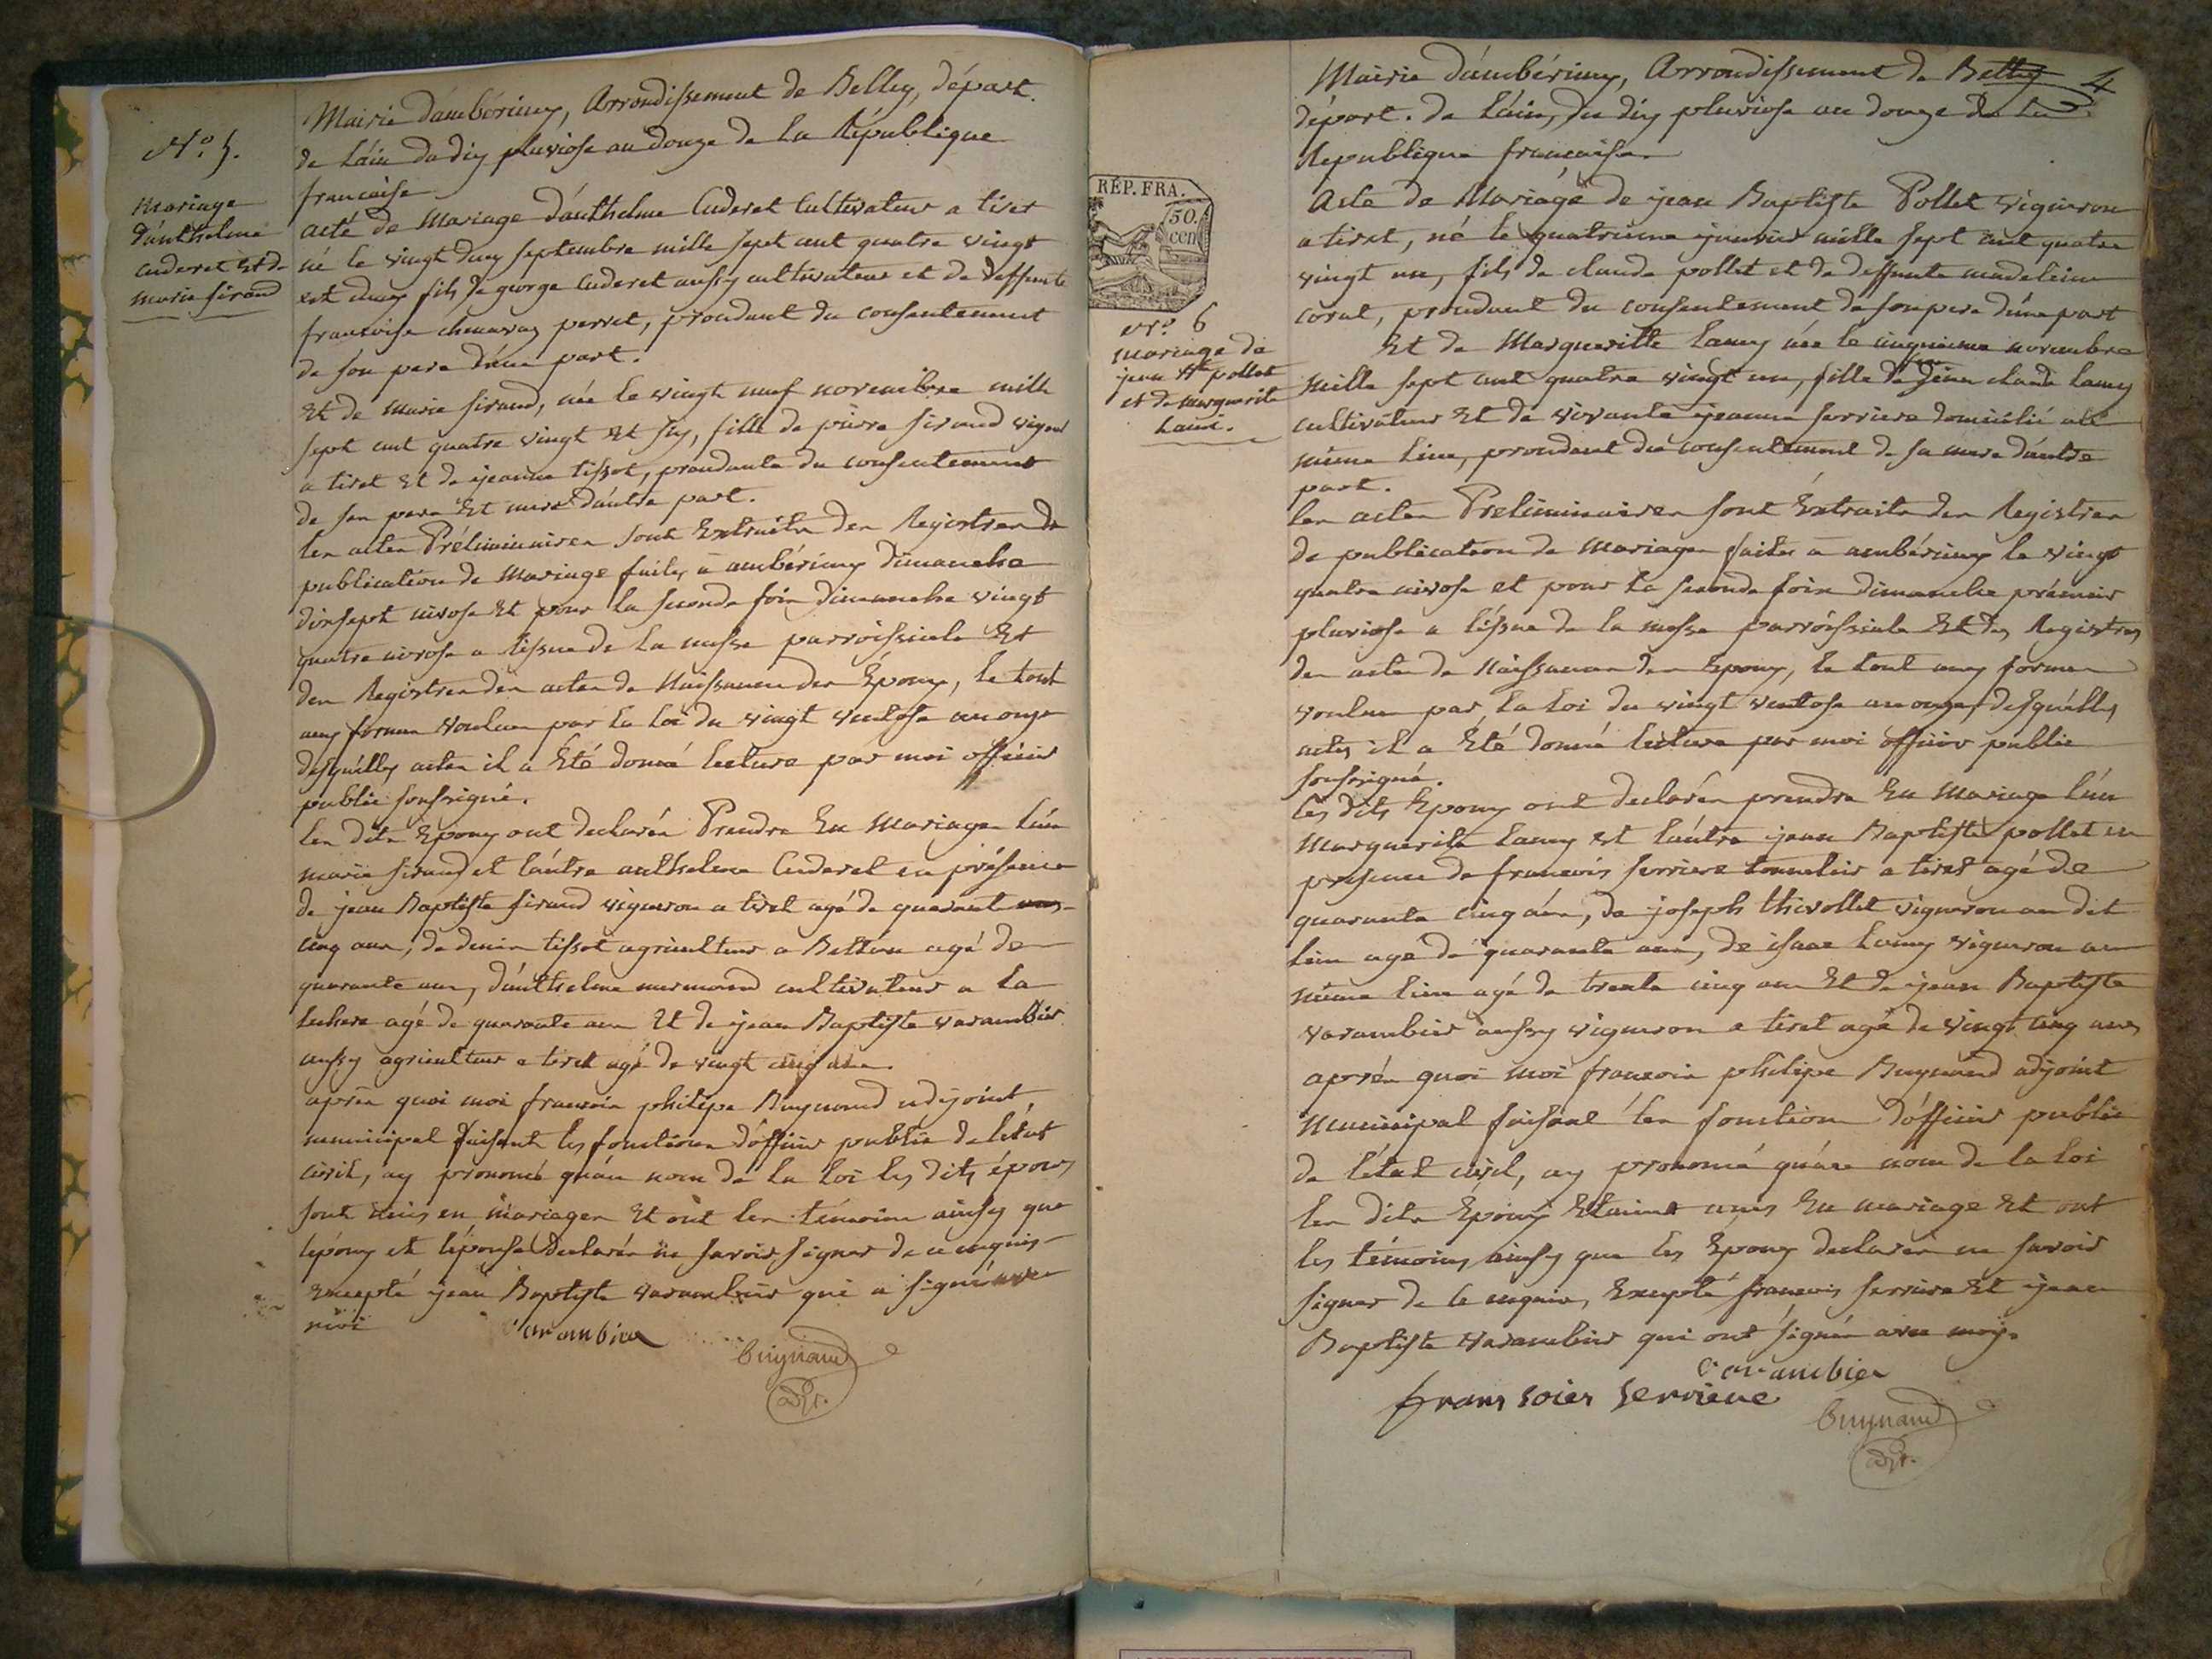 N.º 5.
Mariage
d'anthelme
cuderet et de
marie sirand
Mairie d'ambérieux, Arrondissement de Belley, départ.
de l'ain du dix pluviose an douze de la République
française
acte de Mariage d'anthelme Cuderet Cultivateur a tiret
né le vingt deux septembre mille sept cent quatre vingt
et deux fils de george Cuderet aussy cultivateur et de deffunte
francoise perret, procedant du consentement
de son pere d'une part.
Et de marie sirand, née le vingt neuf novembre mille
sept cent quatre vingt et six, fille de pierre sirand vigneron
a tiret et de jeanne tissot, procedante du consentement
de son pere et mere d'autre part.
les actes Préliminaires sont Extraits des Registres de
publication de Mariage faites a ambérieux dimanche
dixsept nivose et pour la seconde fois dimanche vingt
quatre nivose a l'issue de la messe parroissiale Et
des Registres des actes de Naissances des Époux, le tout
aux formes voulues par la loi du vingt ventose an onze
desquélles actes il a été donné lecture par moi officier
public soussigné.
les dits Epoux ont declarés Prendre En Mariage l'un
marie sirand et l'autre anthelme Cuderet en présence
de jean Baptiste sirand vigneron a tiret agé de quarante
cinq ans, de denis tissot agriculteur a Bettan agé de
quarante ans, d'anthelme cultivateur a la
lechere agé de quarante ans Et de jean Baptiste varambier
aussy agriculteur a tiret agé de vingt cinq ans.
après quoi moi francois philipe Buynand adjoint
municipal faisant les fonctions d'officier public de l'état
civil, ay prononcé qu'au nom de la loi les dits époux
sont unis en mariages Et ont les témoins ainsy que
l'époux et l'épouse declarés ne savoir signer de ce enquis
Excepté jean Baptiste varambier qui a signé avec
moi
Varambier
Buynand
adjt.
4
Mairie d'ambérieux, Arrondissement de Belley
départ. de l'ain, du dix pluviose an douze de la
République française.
RÉP. FRA.
50.
cen
N.º 6
mariage de
jean Bte pollet
et de marguerite
Lami.
Acte de Mariage de jean Baptiste Pollet vigneron
a tiret, né le quatrieme janvier mille sept cent quatre
vingt un, fils de claude pollet et de deffunte madeleine
corat, procedant du consentement de son pere d'une part
Et de Marguerite Lamy née le cinquieme novembre
mille sept cent quatre vingt un, fille de jean claude Lamy
cultivateur Et de vivante jeanne serriere domicilié au
même lieu, procedant du consentement de sa mere d'autre
part.
les actes Preliminaires sont Extraits des Registres
de publication de Mariages faites a ambérieux le vingt
quatre nivose et pour la seconde fois dimanche prémier
pluviose a l'issue de la messe parroissiale Et des Registres
des actes de Naissances des Epoux, le tout aux formes
voulues par la loi du vingt ventose an onze, desquélles
actes il a été donné lecture par moi officier public
soussigné.
les dits Epoux ont declarés prendre En Mariage l'un
Marguerite Lamy et l'autre jean Baptiste pollet en
presence de francois serriere tonnelier a tiret agé de
quarante cinq ans, de joseph thevollet vigneron au dit
lieu agé de quarante ans, de isaac Lamy vigneron au
même lieu agé de trente cinq ans Et de jean Baptiste
varambier aussy vigneron a tiret agé de vingt cinq ans
après quoi moi francois philipe Buynand adjoint
municipal faisant les fonctions d'officier public
de l'état civil, ay prononcé qu'au nom de la loi
les dits Epoux Etaient unis En mariage Et ont
les témoins, ainsy que les Epoux declarés ne savoir
signer de ce enquis, Excepté francois serriere Et jean
Baptiste varambier qui ont signés avec moy.
Varambier
fransoies serriere
Buynand
adjt.